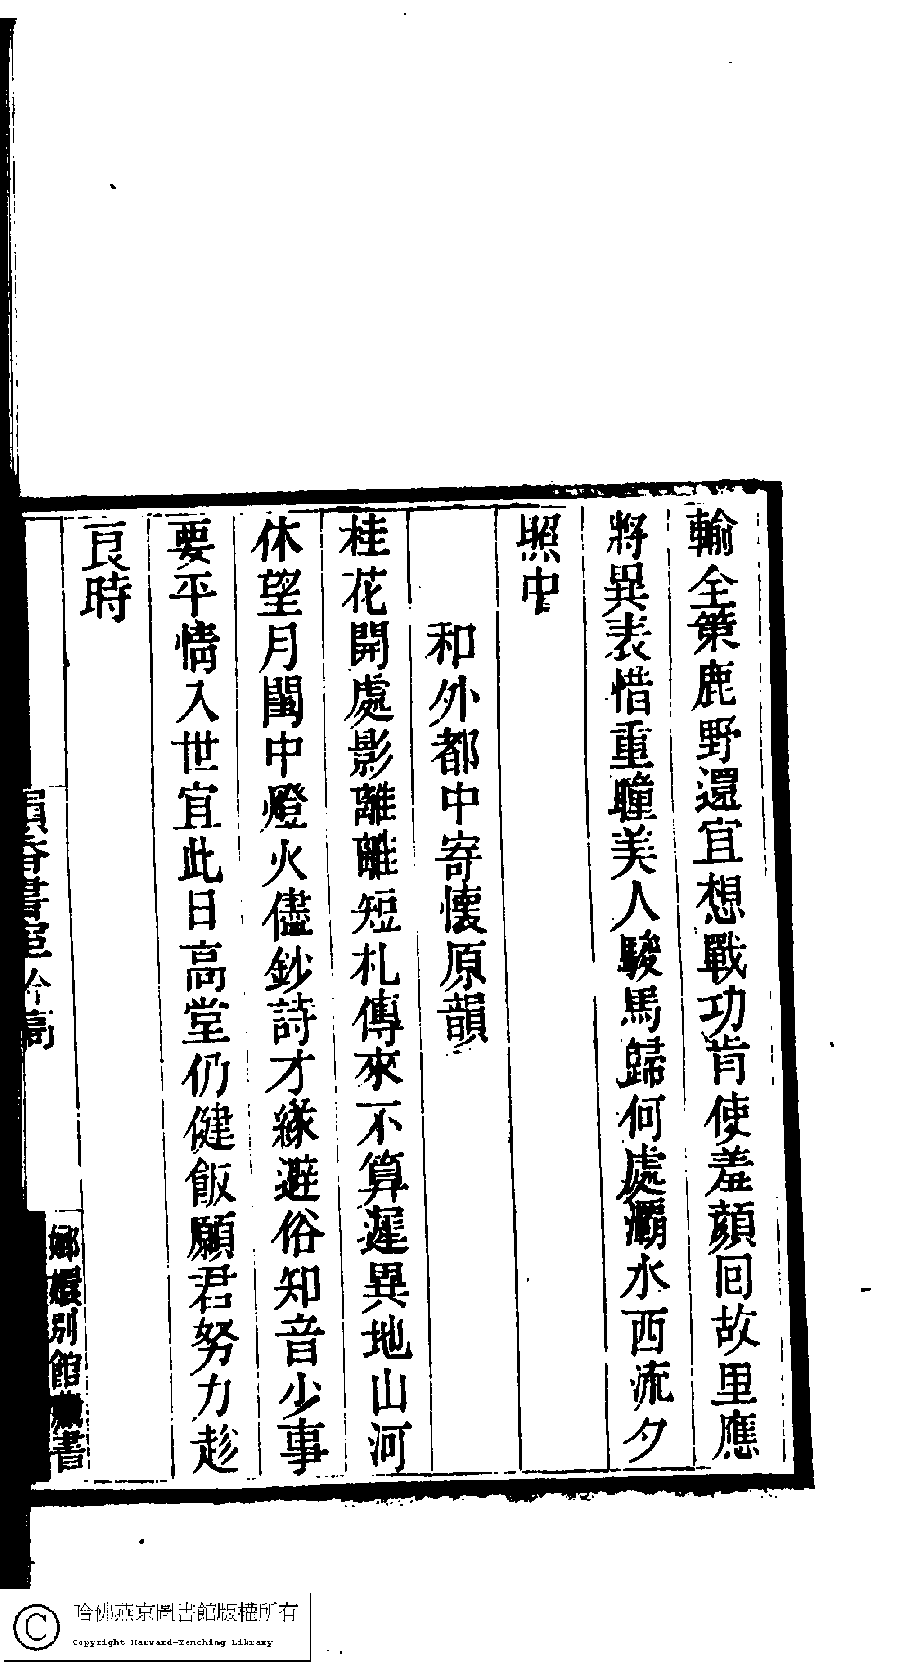 輸全策鹿野還宜想戰功肯使羞顔回故里應
將異表惜重瞳美人駿馬歸何處灞水西流夕
照中
和外都中寄懷原韻
桂花開處影離離短札傳來不算遲異地山河
休望月閨中燈火儘鈔詩才緣避俗知音少事
要平情入世宜此日高堂仍健飯願君努力趁
良時
韻香書室吟稿
嫏嬛別館藏書
哈佛燕京圖書館版權所有
Copyright Harvard-Yenching Library